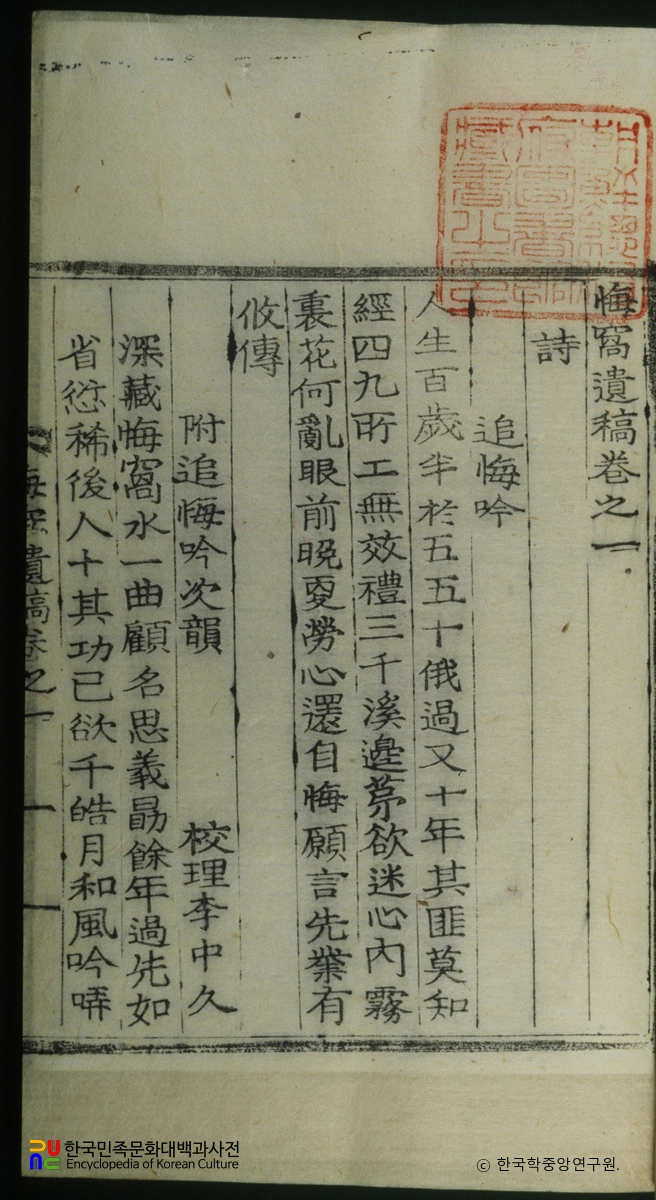 朝鮮總督
府圖書館
藏書之印
悔窩遺稿卷之一
詩
追悔吟
人生百歲半於五五十俄過又十年其匪莫知
經四九所工無效禮三千溪邊茅欲迷心內霧
裏花何亂眼前晩更勞心還自悔願言先業有
攸傳
附追悔吟次韻 校理李中久
深藏悔窩水一曲顧名思義勗餘年過先如
省愆稀後人十其功已欲千皓月和風吟哢
悔窩遺稿卷之一 一
한국민족문화대백과사전
Encyclopedia of Korean Culture
© 한국학중앙연구원.